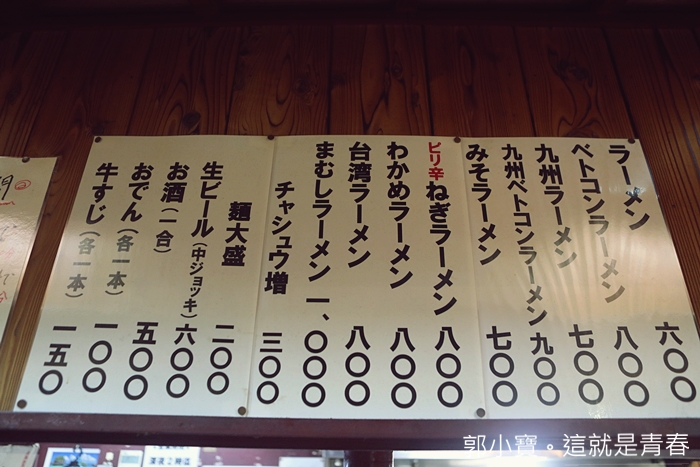 ラーメン 六〇〇
ベトコンラーメン 八〇〇
九州ラーメン 七〇〇
九州ベトコンラーメン 九〇〇
みそラーメン 七〇〇
ピリ辛ねぎラーメン 八〇〇
わかめラーメン 八〇〇
台湾ラーメン 八〇〇
まむしラーメン 一、〇〇〇
チャシュウ増 三〇〇
麺大盛 二〇〇
生ビール(中ジョッキ) 六〇〇
お酒(一合) 五〇〇
おでん(各一本) 一〇〇
牛すじ(各一本) 一五〇
郭小寶。這就是青春